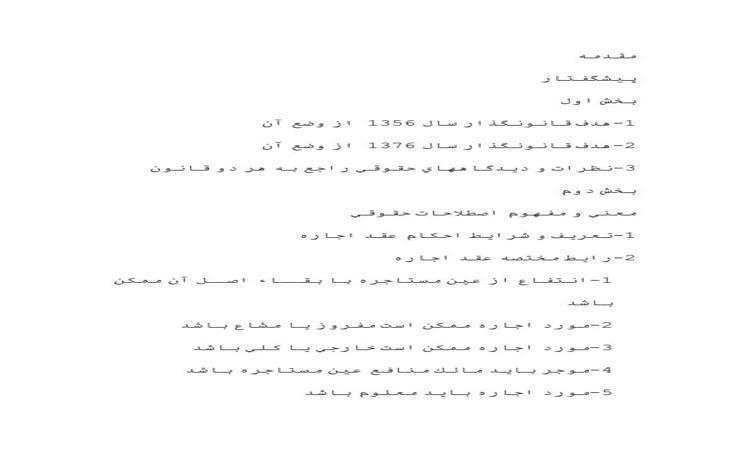 مقدمه
پيشگفتار
بخش اول
1-هدف قانونگذار سال 1356 از وضع آن
2-هدف قانونگذار سال 1376 از وضع آن
3-نظرات و ديدگاههاي حقوقي راجع به هر دو قانون
بخش دوم
معني و مفهوم اصطلاحات حقوقي
1-تعريف و شرايط احكام عقد اجاره
2-رايط مختصه عقد اجاره
1-انتفاع از عين مستاجره با بقاء اصل آن ممكن
باشد
2-مورد اجاره ممكن است مفروز يا مشاع باشد
3-مورد اجاره ممكن است خارجي يا كلي باشد
4-موجر بايد مالك منافع عين مستاجره باشد
5-مورد اجاره بايد معلوم باشد